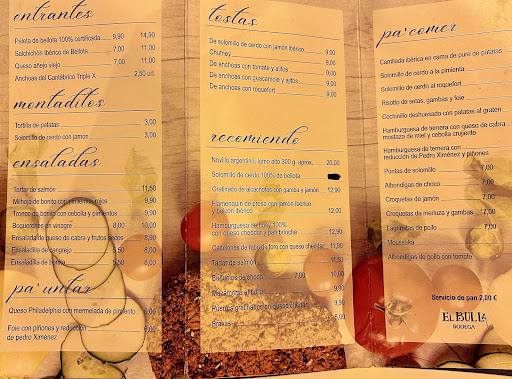 entrantes
Paleta de bellota 100% certificada 9,90 14,90
Salchichón Ibérico de Bellota 7,00 11,00
Queso añejo viejo 7,00 11,00
Anchoas del Cantábrico Triple X 2,50 uni.
montaditos
Tortilla de patatas 3,00
Solomillo de cerdo con jamón 3,00
ensaladas
Tartar de salmón 11,50
Mihoja de bonito con pimientos rojos 9,90
Tronco de bonito con cebolla y pimientos 9,90
Boquerones en vinagre 8,00 10,00
Ensalada de queso de cabra y frutos secos 8,90
Ensaladilla de cangrejo 5,50 8,00
Ensaladilla de bonito 5,50 8,00
pa' untar
Queso Philadelphia con mermelada de pimiento 6,00
Foie con piñones y reducción 9,00
de pedro Ximénez
tostas
De solomillo de cerdo con jamón ibérico
Chutney 8,00
De anchoas con tomate y ajitos 8,00
De anchoas con guacamole y ajitos 8,00
De anchoas con roquefort 8,00
recomiendo
Novillo argentino, lomo alto 300 g. aprox. 20,00
Solomillo de cerdo 100% de bellota
Gratinado de alcachofas con gamba y jamón 12,90
Flamenquín de presa con jamón ibérico
y bacon ibérico 12,00
Hamburguesa de buey 100%
con queso cheddar y pan brioche 12,90
Canelones de rabo de toro con queso cheddar 11,90
Tartar de salmón 11,50
Buñuelos de choco 7,00 10,00
9,90
Puerros gratinados con queso cheddar 9,90
Bravas
pa' comer
Carrillada ibérica en cama de puré de patatas
Solomillo de cerdo a la pimienta
Solomillo de cerdo al roquefort
Risotto de setas, gambas y foie
Cochinillo deshuesado con patatas al gratén
Hamburguesa de ternera con queso de cabra
mostaza de miel y cebolla crujiente
Hamburguesa de ternera con
reducción de Pedro Ximénez y piñones
Puntas de solomillo 7,00
Albóndigas de choco 7,00
Croquetas de jamón 7,00
Croquetas de merluza y gambas 7,00
Lagrimitas de pollo 7,00
Moussaka
Albóndigas de pollo con tomate
Servicio de pan 2,00 €
EL BULLA
BODEGA